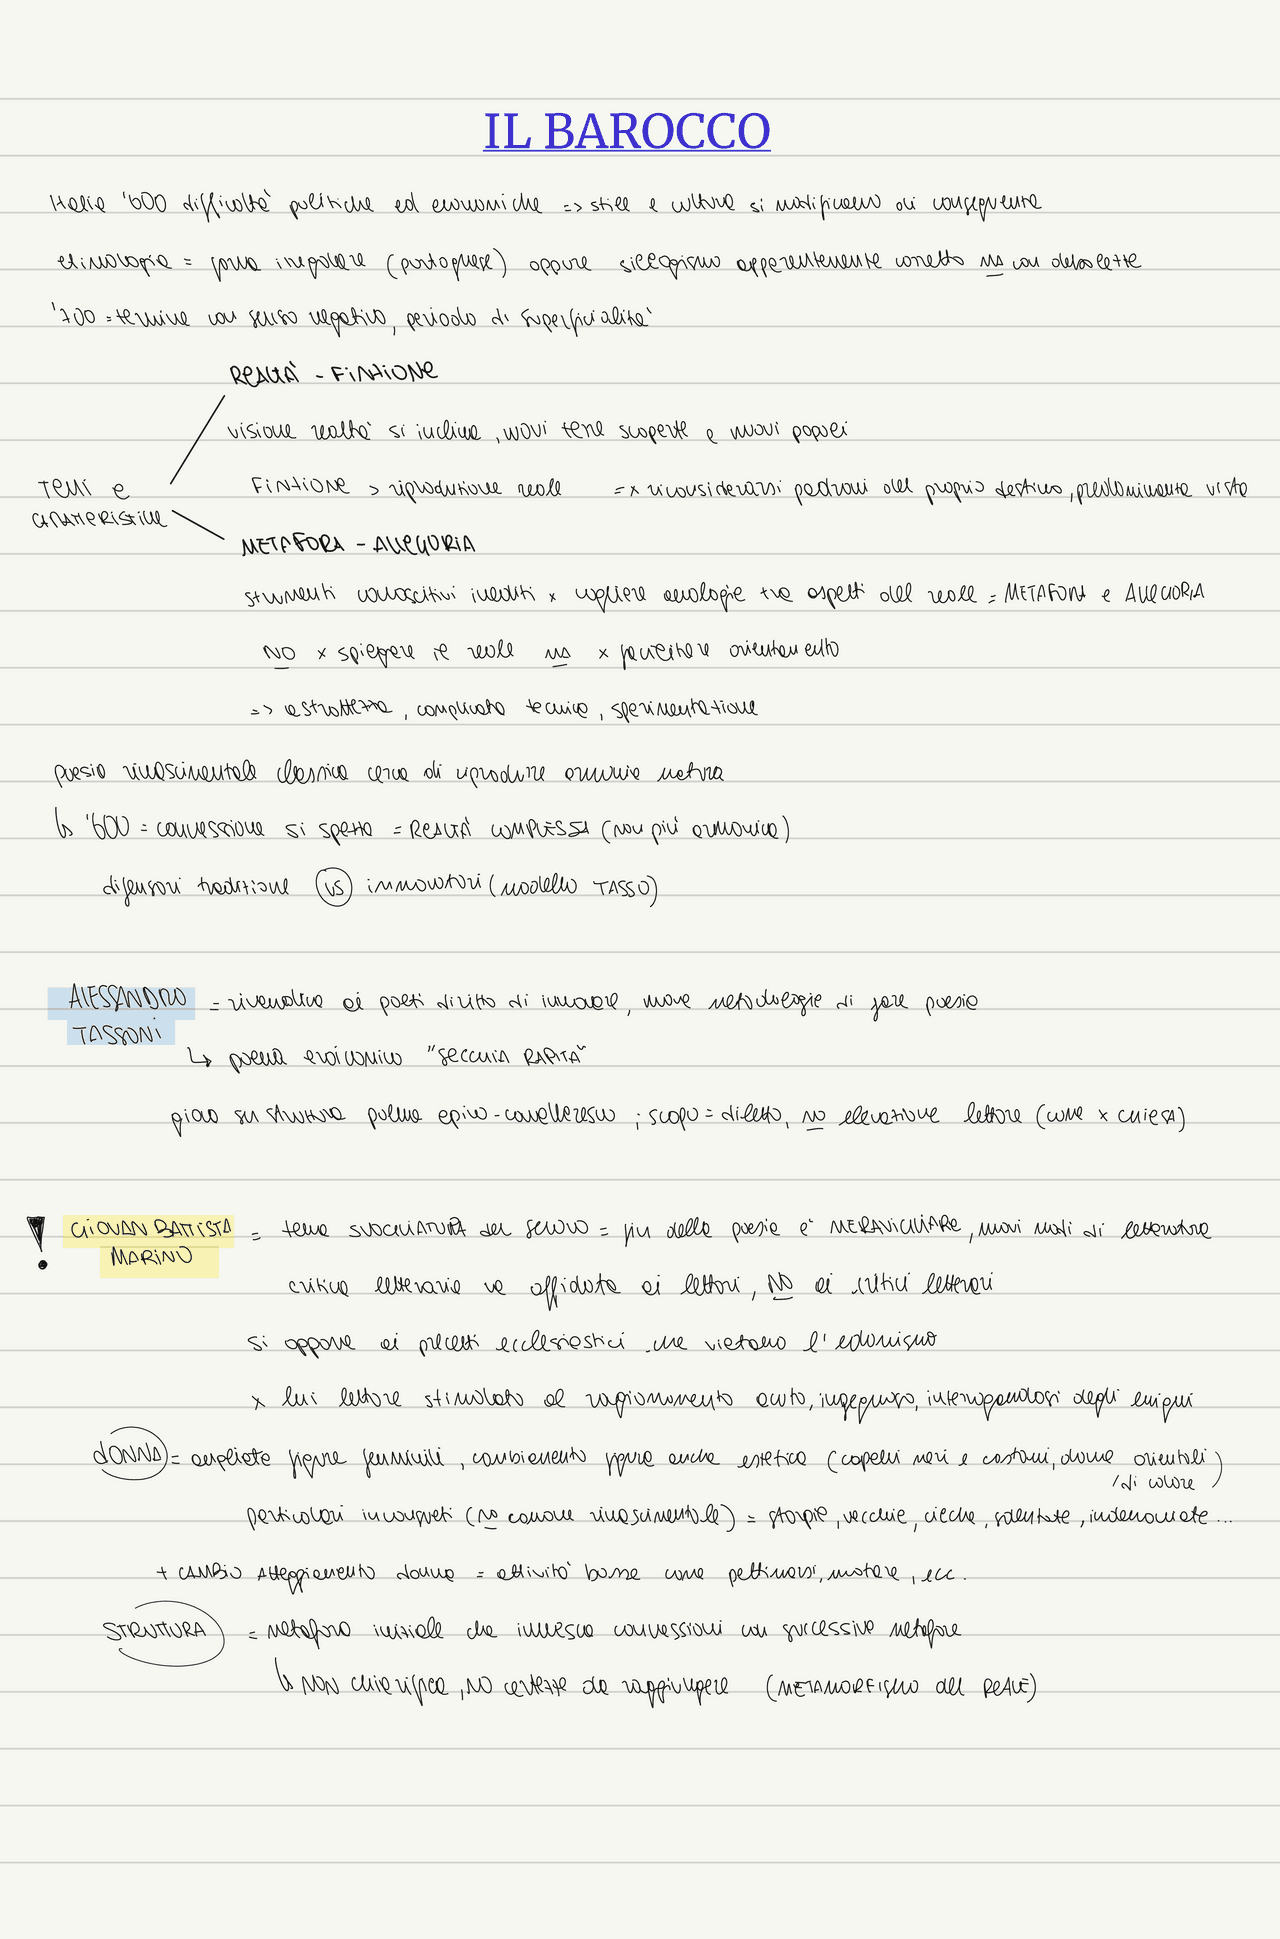 IL BAROCCO
Italia '600 difficoltà politiche ed economiche => stile e cultura si modificano di conseguenza
etimologia = forma irregolare (portoghese) oppure sillogismo apparentemente corretto ma con debolezze
'700 = termine con senso negativo, periodo di superficialità
REALTÀ - FINZIONE
visione realtà si inclina, nuove terre scoperte e nuovi popoli
TEMI e
CARATTERISTICHE
FINZIONE > riproduzione reale = x riconsiderarsi padroni del proprio destino, predominante vista
METAFORA - ALLEGORIA
strumenti conoscitivi inediti x cogliere analogie tra aspetti del reale = METAFORA e ALLEGORIA
NO x spiegare il reale ma x facilitare orientamento
=> astrattezza, complicata tecnica, sperimentazione
poesia rinascimentale classica cerca di riprodurre armonie natura
↳ '600 = connessione si spezza = REALTÀ COMPLESSA (non più armonica)
difensori tradizione VS innovatori (modello TASSO)
ALESSANDRO
TASSONI
= rivendica ai poeti diritto di innovare, nuove metodologie di fare poesia
↳ poema eroicomico "SECCHIA RAPITA"
gioca su struttura poema epico-cavalleresco ; scopo = diletto, no elevazione lettore (come x CHIESA)
! GIOVAN BATTISTA
MARINO
= tema SVOGLIATURA del SECOLO = fin della poesia è MERAVIGLIARE, nuovi modi di letteratura
critica letteraria va affidata ai lettori, NO ai critici letterari
si oppone ai precetti ecclesiastici che vietano l'edonismo
x lui lettore stimolato al ragionamento acuto, ingegnoso, interrogandosi degli enigmi
DONNA = ampliate figure femminili, cambiamento figura anche estetica (capelli neri e castani, donne orientali)
/di colore
particolari incongrueti (no canone rinascimentale) = storpie, vecchie, cieche, sdentate, indemoniate...
+ CAMBIO Atteggiamento donna = attività basse come pettinarsi, nuotare, ecc.
STRUTTURA = metafora iniziale che innesca connessioni con successive metafore
↳ NON chiarifica, NO certezze da raggiungere (METAMORFISMO del REALE)